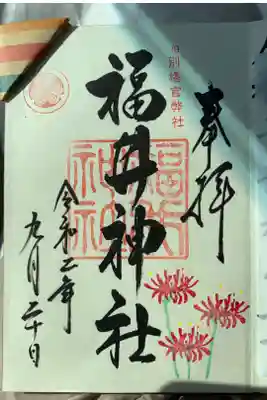 奉拝
旧別格官幣社
福井神社
福井神社
令和二年
九月二十日